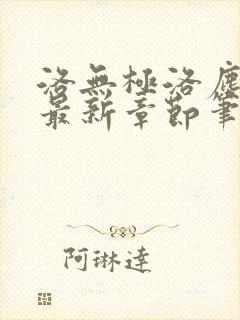 洛無極洛塵
最新章節筆
阿琳達